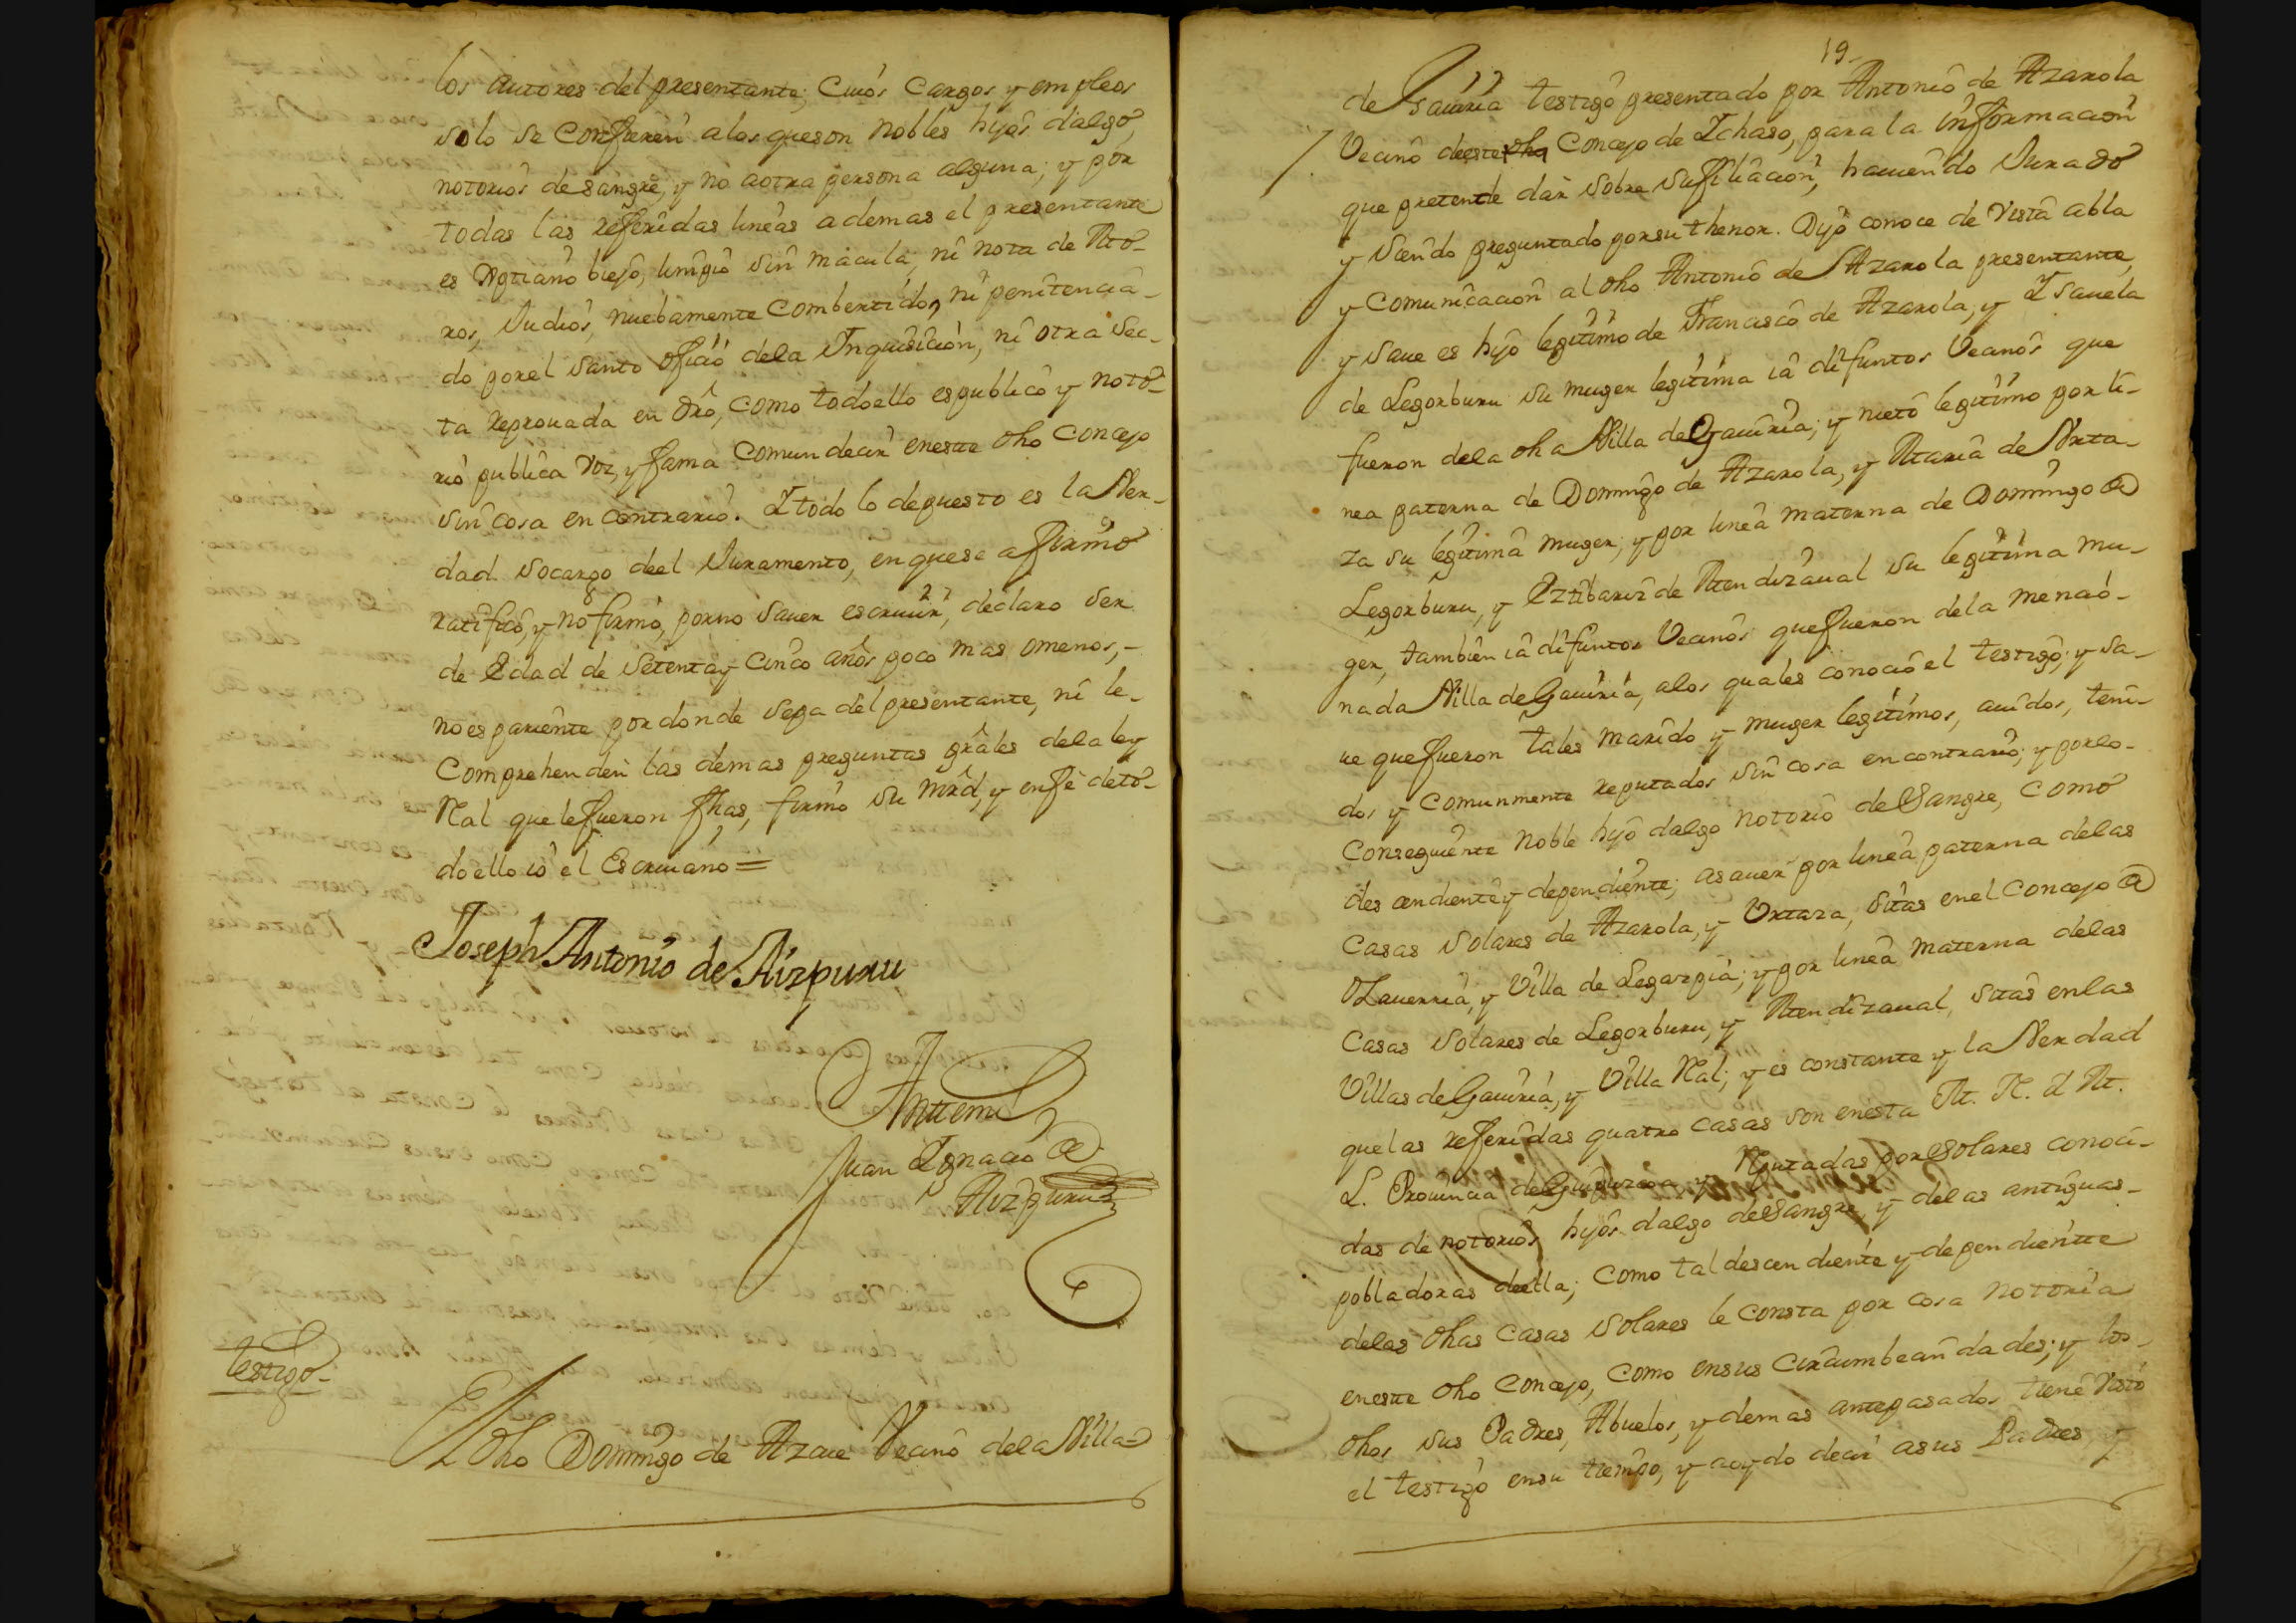 los autores del presentante; Cuios Cargos y empleos
solo se Confieren a los que son Nobles hijos dalgo,
notorios de sangre, y no a otra persona alguna; y por
todas las referidas lineas ademas el presentante
es Xptiano biejo, limpio sin macula, ni nota de Mo-
ros, Judios, nuebamente Combertidos, ni penitencia-
do por el Santo oficio dela Inquisicion, ni otra Sec-
ta reprouada en dro, como todo ello es publico y noto-
rio publica voz, y fama Comun decir en este dho Concejo
sin cosa en Contrario. I todo lo depuesto es la Ver-
dad socargo de el Juramento, en que se afirmó
ratificó, y no firmó, por no sauer escriuir, declaro ser
de Edad de Setenta y Cinco años poco mas o menos, -
no es pariente por donde sepa del presentante, ni le
Comprehenden las demas preguntas grâles dela ley
Real que le fueron fhas, firmó su mrd, y en fé de to-
do ello io el Escriuano =
Joseph Antonio de Aizpuru
Antemi
Juan Ignacio de
Aizpuru
testigo
El dho Domingo de Azcue Vecino dela Villa
19
de Gauiria testigo presentado por Antonio de Azarola
Vecino de este dho Concejo de Ichaso, para la informacion
que pretende dar sobre su filiacion, hauiendo Jurado
y siendo preguntado por su thenor. Dijo conoce de vista abla
y Comunicacion al dho Antonio de Azarola presentante,
y saue es hijo legitimo de Francisco de Azarola, y Isauela
de Legorburu su muger legitima ia difuntos Vecinos que
fueron dela dha Villa de Gauiria; y nieto legitimo por li-
nea paterna de Domingo de Azarola, y Maria de Vrta-
za su legitima muger; y por linea materna de Domingo de
Legorburu, y Eztibariz de Mendizaual su legitima mu-
ger, tambien ia difuntos Vecinos que fueron dela mencio-
nada Villa de Gauiria, alos quales conoció el testigo; y sa-
ue que fueron tales marido y muger legitimos, auidos, teni-
dos y comunmente reputados sin cosa en contrario; y por lo
Conseguiente Noble hijo dalgo notorio de Sangre, como
descendiente y dependiente; asauer por linea paterna delas
Casas Solares de Azarola, y Vrtaza, sitas en el Concejo de
Ezquioga, y Villa de Legazpia; y por linea materna delas
Casas Solares de Legorburu, y Mendizaual, sitas en las
Villas de Gauiria, y Villa Real; y es constante y la Verdad
que las referidas quatro casas son en esta M. N. d M.
L. Prouincia de Guipuzcoa y Reputadas por Solares conoci-
das de notorios hijos dalgo de Sangre, y delas antiguas
pobladoras de ella; Como tal descendiente y dependiente
delas dhas Casas Solares le consta por cosa notoria
en este dho Concejo, como en sus Circumbecindades; y los
dhos sus Padres, Abuelos, y demas antepasados tiene visto
el testigo en su tiempo, y a oydo decir a sus Padres, y